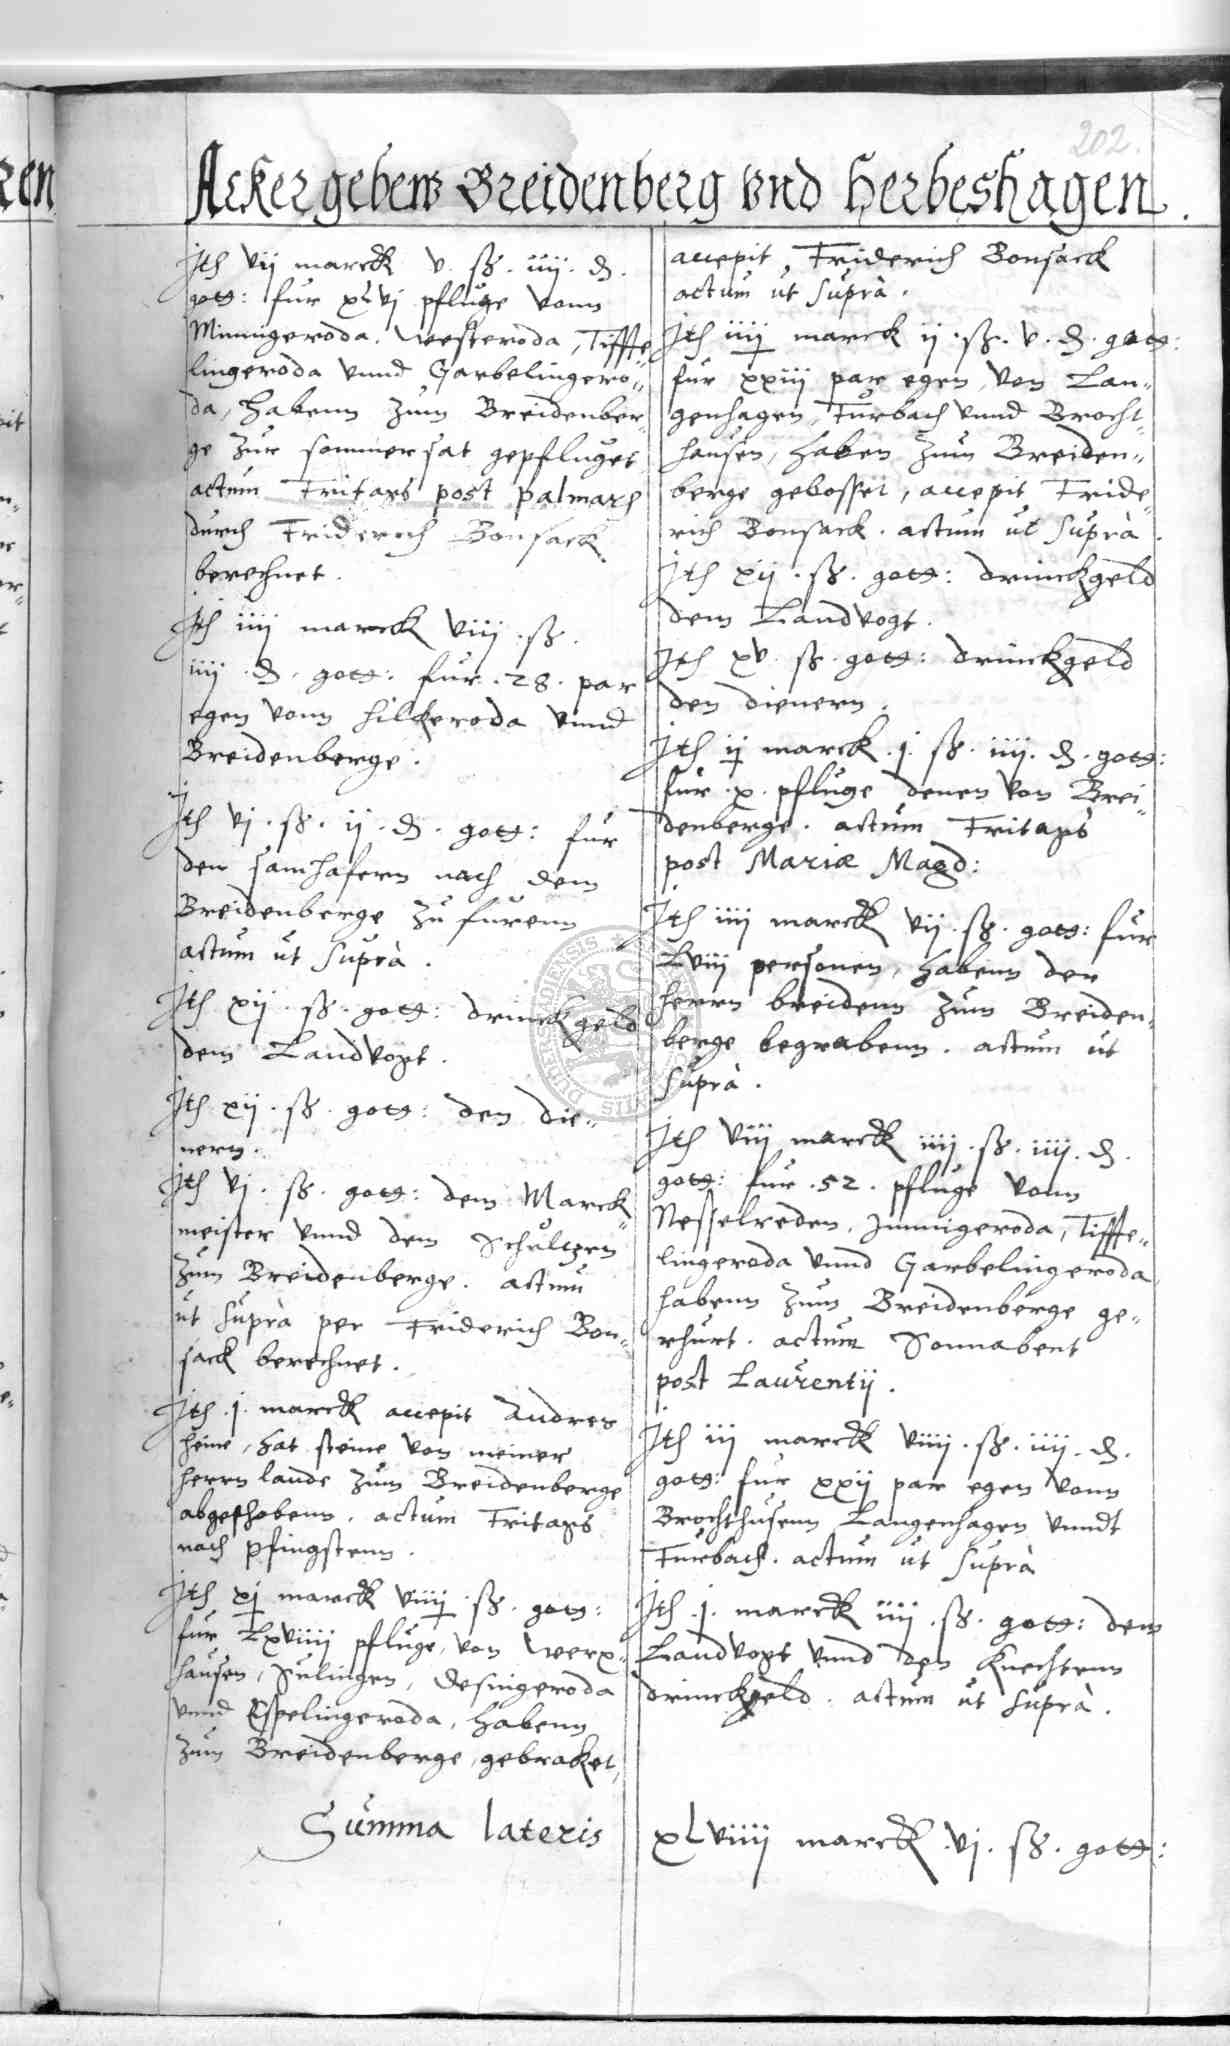 202.
Ackergebens Breidenberg und Herbeshagen.
Jth vij marck v. ß. iiij. d.
gott: fur xLvj pfluge vonn
Minnigeroda. Westeroda, Tiffte
lingeroda vnnd Garbelingero„
da, habenn zum Breidenber„
ge zur sommersat gepfluget
actum Fritags post palmarum
durch Friderich Bonsack
berechnet.
Jth iiij marck viij .ß.
iiij .d. gott: fur .28. par
egen vonn Hilkeroda vnnd
Breidenberge.
Jth vj .ß. ij .d. gott: fur
den samhafern nach dem
Breidenberge zu furenn
actum ut supra.
Jth xij .ß. gott: drinckgeld
dem Landvogt.
Jth xij .ß. gott: den die„
nern.
Jth vj .ß. gott: dem Marck„
meister vnnd dem Schultzen
zum Breidenberge. actum
ut supra per Friderich Bon„
sack berechnet.
Jth .j. marck accepit Andres
heine, hat steine von meiner
herrn lande zum Breidenberge
abgeschobenn. actum Fritags
nach pfingstenn.
Jth xj marck viiij .ß. gott:
fur Lxviiij pfluge, von Werx„
hausen, Sulingen, Desingeroda
vnnd Espelingeroda, habenn
zum Breidenberge, gebraket,
accepit, Friderich Bonsack
actum ut supra.
Jth iiij marck ij .ß. v. d. gott:
fur xxiij par egen, von Lan„
genhagen, Furbach vnnd Brocht„
hausen, haben zum Breiden„
berge gebosset, accepit Fride„
rich Bonsack. actum ut supra.
Jth xij .ß. gott: drinckgeld
dem Landvogt.
Jth xv .ß. gott: drinckgeld
den dienern.
Jth ij marck .j. ß. iiij. d. gott:
fur .x. pfluge denen von Brei„
denberge. actum Fritags
post Mariæ Magd:
Jth iiij marck vij .ß. gott: fur
Lviij personen, habenn der
herrn breidenn zum Breiden„
berge begrabenn. actum ut
supra.
Jth viij marck iiij .ß. iiij. d.
gott: fur .52. pfluge vonn
Nesselreden, Jmmigeroda, Tiffte„
lingeroda vnnd Garbelingeroda
habenn zum Breidenberge ge„
rhurt. actum Sonnabent
post Laurentij.
Jth iij marck viiij .ß. iiij. d.
gott: fur xxij par egen vonn
Brochthusenn Langenhagen vnndt
Furbach. actum ut supra
Jth .j. marck iiij .ß. gott: dem
Landvogt vnnd den Knechtenn
drinckgeld. actum ut supra.
Summa lateris xLviiij marck .vj. ß. gott: